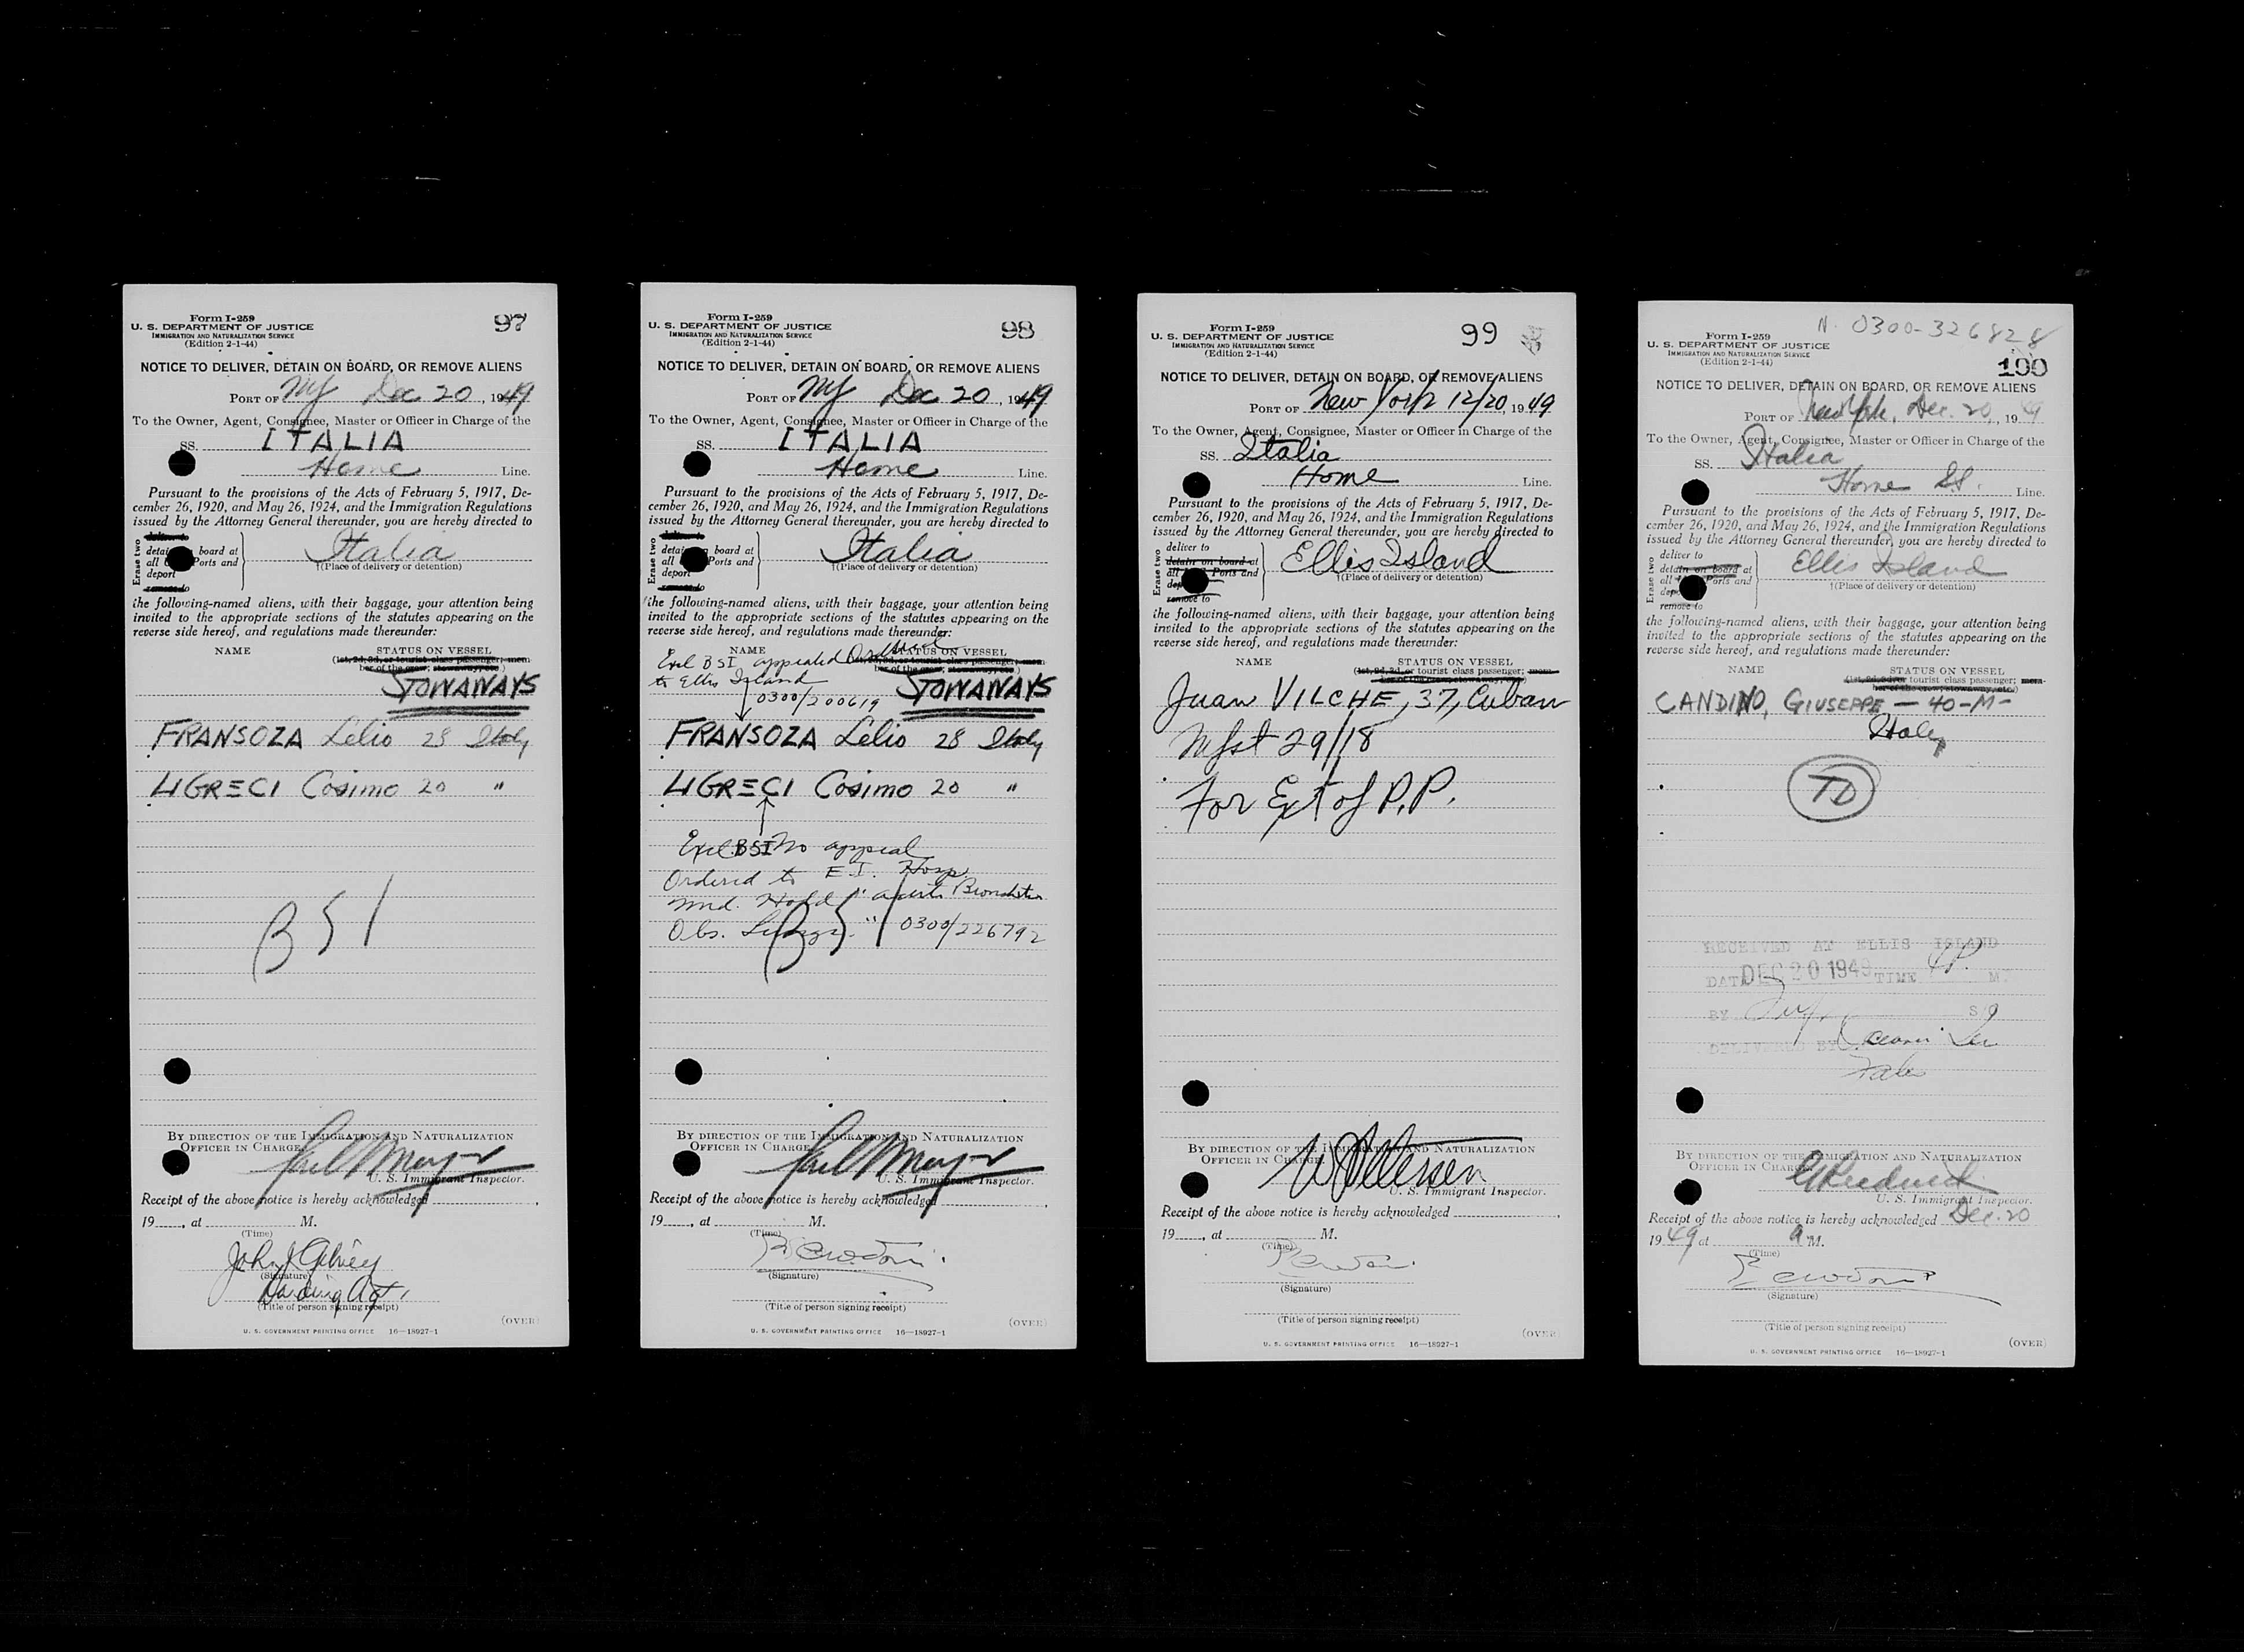 Form I-259
U. S. DEPARTMENT OF JUSTICE
IMMIGRATION AND NATURALIZATION SERVICE
(Edition 2-1-44)
97
NOTICE TO DELIVER, DETAIN ON BOARD, OR REMOVE ALIENS
PORT OF NY Dec 20, 1949
To the Owner, Agent, Consignee, Master or Officer in Charge of the
SS. ITALIA
Home Line.
Pursuant to the provisions of the Acts of February 5, 1917, De-
cember 26, 1920, and May 26, 1924, and the Immigration Regulations
issued by the Attorney General thereunder, you are hereby directed to
Erase two
board at
all Ports and
deport
remove to
Italia
†(Place of delivery or detention)
the following-named aliens, with their baggage, your attention being
invited to the appropriate sections of the statutes appearing on the
reverse side hereof, and regulations made thereunder:
NAME STATUS ON VESSEL
(1st, 2d, 3d, or tourist class passenger; mem-
ber of the crew; stowaway, etc.)
STOWAWAYS
FRANSOZA Lelio 28 Italy
LIGRECI Cosimo 20 "
BSI
BY DIRECTION OF THE IMMIGRATION AND NATURALIZATION
OFFICER IN CHARGE
U. S. Immigrant Inspector.
Receipt of the above notice is hereby acknowledged
19____, at ____ M.
(Time)
John
(Signature)
(Title of person signing receipt)
(OVER)
U. S. GOVERNMENT PRINTING OFFICE 16—18927-1
Form I-259
U. S. DEPARTMENT OF JUSTICE
IMMIGRATION AND NATURALIZATION SERVICE
(Edition 2-1-44)
98
NOTICE TO DELIVER, DETAIN ON BOARD, OR REMOVE ALIENS
PORT OF NY Dec 20, 1949
To the Owner, Agent, Consignee, Master or Officer in Charge of the
SS. ITALIA
Home Line.
Pursuant to the provisions of the Acts of February 5, 1917, De-
cember 26, 1920, and May 26, 1924, and the Immigration Regulations
issued by the Attorney General thereunder, you are hereby directed to
Erase two
board at
all Ports and
deport
remove to
Italia
†(Place of delivery or detention)
the following-named aliens, with their baggage, your attention being
invited to the appropriate sections of the statutes appearing on the
reverse side hereof, and regulations made thereunder:
NAME STATUS ON VESSEL
(1st, 2d, 3d, or tourist class passenger; mem-
ber of the crew; stowaway, etc.)
Excl BSI appealed Ordered
to Ellis Island
0300/200619
STOWAWAYS
FRANSOZA Lelio 28 Italy
LIGRECI Cosimo 20 "
Excl. BSI No appeal
Ordered to E.I. Hosp.
Med. Hold "acute
Obs. " 0300/226792
BSI
BY DIRECTION OF THE IMMIGRATION AND NATURALIZATION
OFFICER IN CHARGE
U. S. Immigrant Inspector.
Receipt of the above notice is hereby acknowledged
19____, at ____ M.
(Time)
(Signature)
(Title of person signing receipt)
(OVER)
U. S. GOVERNMENT PRINTING OFFICE 16—18927-1
Form I-259
U. S. DEPARTMENT OF JUSTICE
IMMIGRATION AND NATURALIZATION SERVICE
(Edition 2-1-44)
99
NOTICE TO DELIVER, DETAIN ON BOARD, OR REMOVE ALIENS
PORT OF New York 12/20, 1949
To the Owner, Agent, Consignee, Master or Officer in Charge of the
SS. Italia
Home Line.
Pursuant to the provisions of the Acts of February 5, 1917, De-
cember 26, 1920, and May 26, 1924, and the Immigration Regulations
issued by the Attorney General thereunder, you are hereby directed to
Erase two
deliver to
detain on board at
all Ports and
remove to
Ellis Island
†(Place of delivery or detention)
the following-named aliens, with their baggage, your attention being
invited to the appropriate sections of the statutes appearing on the
reverse side hereof, and regulations made thereunder:
NAME STATUS ON VESSEL
(1st, 2d, 3d, or tourist class passenger; mem-
ber of the crew; stowaway, etc.)
Juan VILCHE, 37, Cuban
Mfst 29/18
For Ext of P.P.
BY DIRECTION OF THE IMMIGRATION AND NATURALIZATION
OFFICER IN CHARGE.
U. S. Immigrant Inspector.
Receipt of the above notice is hereby acknowledged
19____, at ____ M.
(Time)
(Signature)
(Title of person signing receipt)
(OVER)
U. S. GOVERNMENT PRINTING OFFICE 16—18927-1
N. 0300-326828
Form I-259
U. S. DEPARTMENT OF JUSTICE
IMMIGRATION AND NATURALIZATION SERVICE
(Edition 2-1-44)
100
NOTICE TO DELIVER, DETAIN ON BOARD, OR REMOVE ALIENS
PORT OF New York, Dec. 20, 1949
To the Owner, Agent, Consignee, Master or Officer in Charge of the
SS. Italia
Home Line.
Pursuant to the provisions of the Acts of February 5, 1917, De-
cember 26, 1920, and May 26, 1924, and the Immigration Regulations
issued by the Attorney General thereunder, you are hereby directed to
Erase two
deliver to
detain on board at
all Ports and
remove to
Ellis Island
†(Place of delivery or detention)
the following-named aliens, with their baggage, your attention being
invited to the appropriate sections of the statutes appearing on the
reverse side hereof, and regulations made thereunder:
NAME STATUS ON VESSEL
(1st, 2d, 3d, or tourist class passenger; mem-
ber of the crew; stowaway, etc.)
CANDINO, GIUSEPPE — 40-M-
Italy
TD
RECEIVED AT ELLIS ISLAND
DATE DEC 20 1949 TIME P. M.
BY S/O
DELIVERED BY
BY DIRECTION OF THE IMMIGRATION AND NATURALIZATION
OFFICER IN CHARGE
U. S. Immigrant Inspector.
Receipt of the above notice is hereby acknowledged Dec. 20
1949 at a M.
(Time)
(Signature)
(Title of person signing receipt)
(OVER)
U. S. GOVERNMENT PRINTING OFFICE 16—18927-1